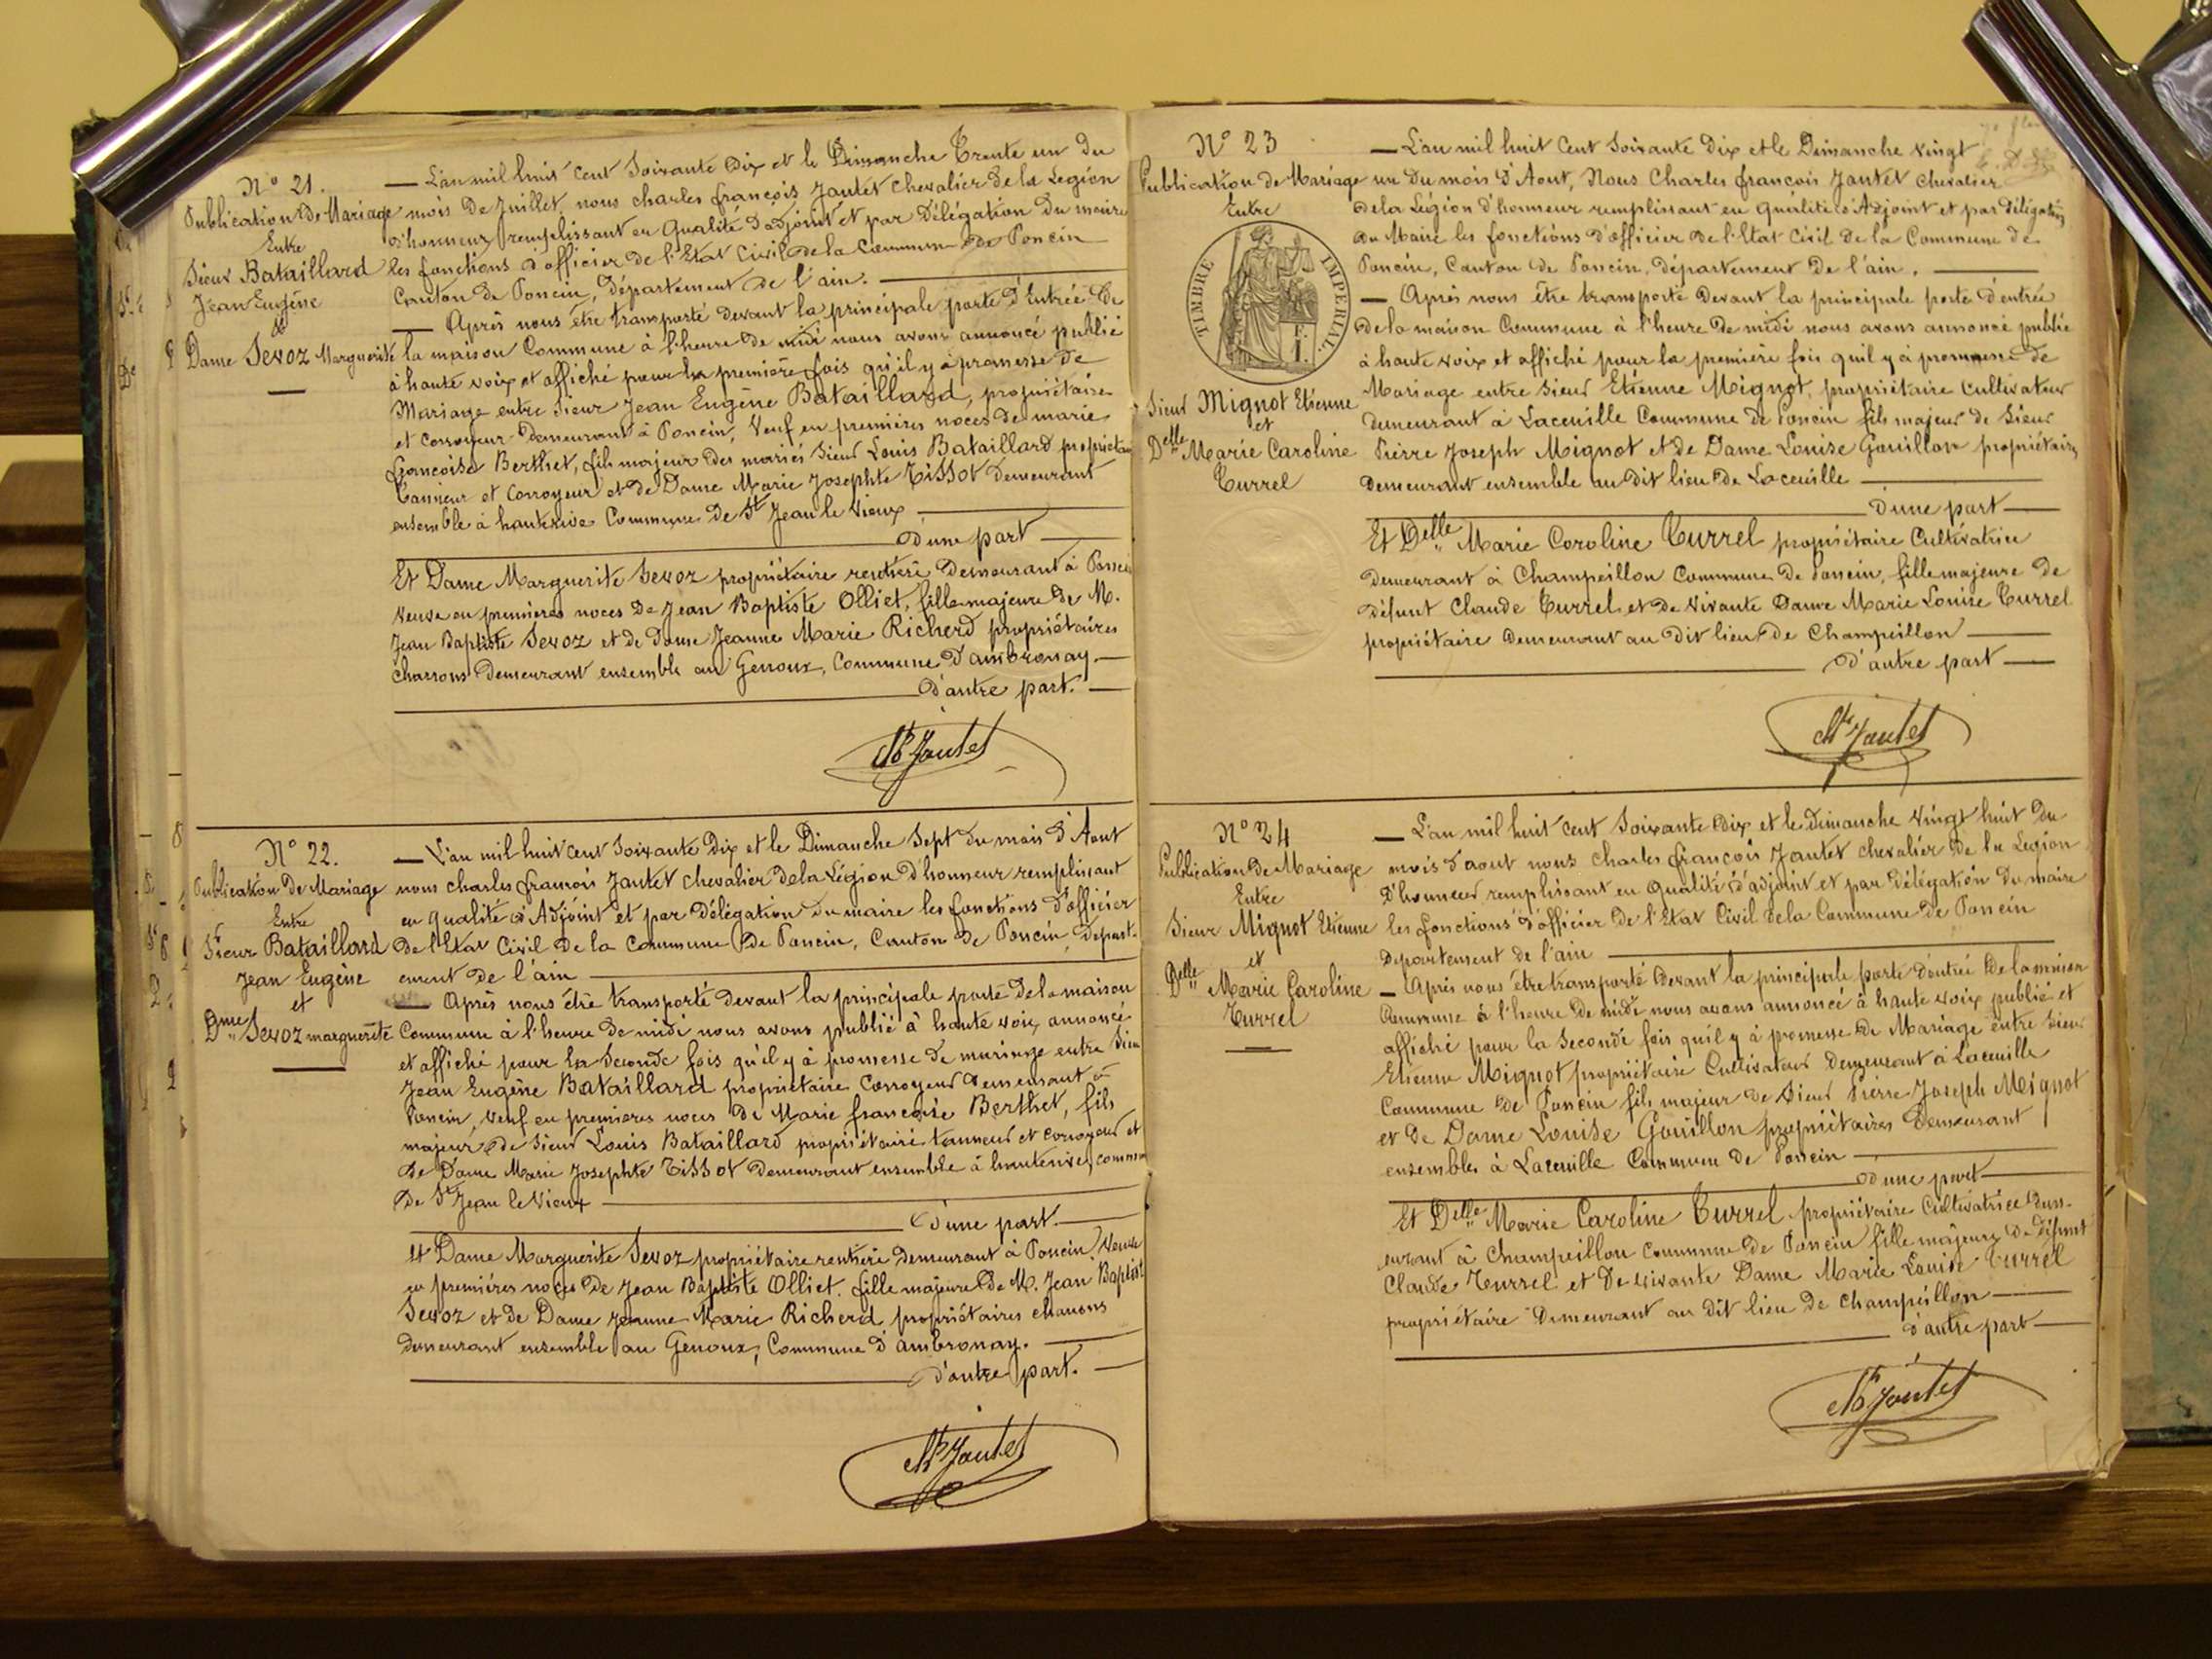 N° 21.
Publication de Mariage
Entre
Sieur Bataillard
Jean Eugène
et
Dame Sevoz Marguerite
— L'an mil huit cent soixante dix et le Dimanche Trente un du
mois de Juillet, nous charles françois Jantet chevalier de la Légion
d'honneur remplissant en qualité d'adjoint et par délégation du maire
les fonctions d'officier de l'Etat Civil de la Commune de Poncin
Canton de Poncin, Département de l'ain. —
— Après nous être transporté devant la principale porte d'Entrée de
la maison Commune à l'heure de midi nous avons annoncé publié
à haute voix et affiché pour la première fois qu'il y à promesse de
Mariage entre sieur Jean Eugène Bataillard, propriétaire
et corroyeur demeurant à Poncin, Veuf en premières noces de marie
françoise Berthet, fils majeur des mariés sieur Louis Bataillard propriétaire
Tanneur et corroyeur et de Dame Marie Josephte Tissot demeurant
ensemble à hauterive Commune de St Jean le Vieux —
d'une part —
Et Dame Marguerite Sevoz propriétaire rentière demeurant à Poncin
Veuve en premières noces de Jean Baptiste Olliet, fille majeure de M.
Jean Baptiste Sevoz et de dame Jeanne Marie Richerd propriétaires
charrons demeurant ensemble au Genoux, Commune d'ambronay. —
d'autre part. —
Ch Jantet
N° 22.
Publication de Mariage
Entre
Sieur Bataillard
Jean Eugène
et
Dme Sevoz marguerite
— L'an mil huit cent soixante dix et le Dimanche sept du mois d'Aout
nous charles françois Jantet chevalier de la Légion d'honneur remplissant
en qualité d'Adjoint et par délégation du maire les fonctions d'officier
de l'Etat Civil de la commune de Poncin, Canton de Poncin, départ-
ement de l'ain —
— Après nous être transporté devant la principale porte de la maison
Commune à l'heure de midi nous avons publié à haute voix, annoncé
et affiché pour la seconde fois qu'il y à promesse de mariage entre Sieur
Jean Eugène Bataillard propriétaire corroyeur demeurant à
Poncin, veuf en premières noces de Marie françoise Berthet, fils
majeur de sieur Louis Bataillard propriétaire tanneur et corroyeur et
de Dame Marie Josephte Tissot demeurant ensemble à hauterive, commune
de St Jean le Vieux —
d'une part. —
Et Dame Marguerite Sevoz propriétaire rentière demeurant à Poncin, Veuve
en premières noces de Jean Baptiste Olliet. fille majeure de M. Jean Baptiste
Sevoz et de Dame Jeanne Marie Richerd, propriétaires charrons
demeurant ensemble au Genoux, Commune d'ambronay. —
d'autre part. —
Ch Jantet
N° 23
Publication de Mariage
Entre
TIMBRE IMPERIAL
1 F.
Sieur Mignot Etienne
et
Delle Marie Caroline
Turrel
— L'an mil huit Cent soixante Dix et le Dimanche vingt
un du mois d'Aout, Nous Charles françois Jantet chevalier
de la Légion d'honneur remplissant en qualité d'Adjoint et par délégation
du Maire les fonctions d'officier de l'Etat Civil de la Commune de
Poncin, Canton de Poncin, département de l'ain. —
— Après nous être transporté devant la principale porte d'entrée
de la maison Commune à l'heure de midi nous avons annoncé publié
à haute voix et affiché pour la première fois qu'il y à promesse de
Mariage entre sieur Etienne Mignot, propriétaire cultivateur
demeurant à Laceuille Commune de Poncin fils majeur de sieur
Pierre Joseph Mignot et de Dame Louise Gouillon propriétaires
demeurant ensemble au dit lieu de Laceuille —
d'une part —
Et Delle Marie Caroline Turrel propriétaire Cultivatrice
demeurant à Champeillon Commune de Poncin, fille majeure de
défunt Claude Turrel et de vivante Dame Marie Louise Turrel
propriétaire demeurant au dit lieu de Champeillon —
d'autre part —
Ch Jantet
N° 24
Publication de Mariage
Entre
Sieur Mignot Etienne
et
Delle Marie Caroline
Turrel
— L'an mil huit cent soixante dix et le dimanche vingt huit du
mois d'aout nous charles françois Jantet chevalier de la Légion
d'honneur remplissant en qualité d'adjoint et par délégation du maire
les fonctions d'officier de l'Etat Civil de la Commune de Poncin
Departement de l'ain —
— Après nous être transporté devant la principale porte d'entrée de la maison
Commune à l'heure de midi nous avons annoncé à haute voix publié et
affiché pour la seconde fois qu'il y à promesse de Mariage entre sieur
Etienne Mignot propriétaire Cultivateur demeurant à Laceuille
Commune de Poncin fils majeur de Sieur Pierre Joseph Mignot
et de Dame Louise Gouillon propriétaires demeurant
ensemble à Laceuille Commune de Poncin —
d'une part —
Et Delle Marie Caroline Turrel propriétaire Cultivatrice dem-
eurant à Champeillon commune de Poncin fille majeure de défunt
Claude Turrel et de vivante Dame Marie Louise Turrel
propriétaire demeurant au dit lieu de Champeillon —
d'autre part —
Ch Jantet